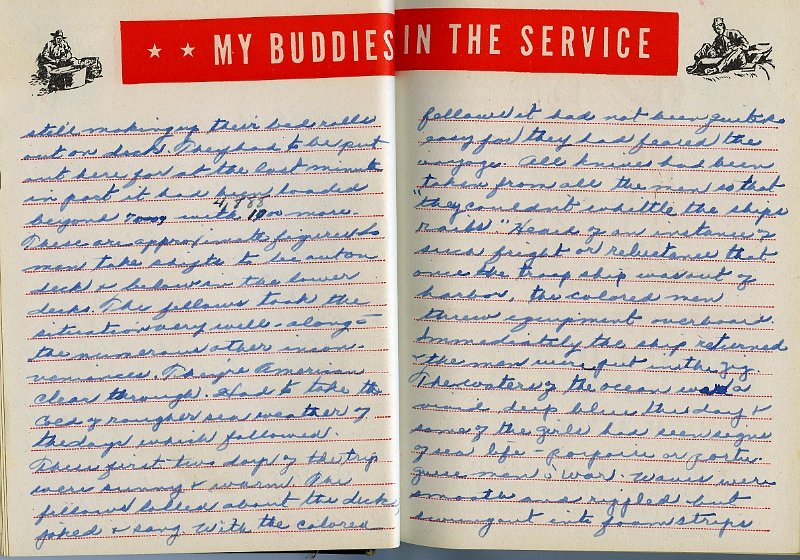 ★ ★ MY BUDDIES IN THE SERVICE
still making up their bed rolls
out on deck. They had to be put
out here for at the last minute
in port it had been loaded
4,888
beyond with 1900 more.
These are approximate figures. So
men take nights to be out on
deck & below in the lower
decks. The fellows took the
situation very well - along
the numerous other incon-
veniences. They're American
clear through. Had to take the
of rougher sea weather of
the days which followed.
These first two days of the trip
were sunny & warm. The
fellows lolled about the decks
joked & sang. With the colored
fellows it had not been quite so
easy for they had feared the
voyage. All knives had been
taken from all the men so that
"they couldn't whittle the ships
rails." Heard of an instance of
such fright or reluctance that
once the troop ship was out of
harbor, the colored men
threw equipment overboard.
Immediately the ship returned
& the men were put in the
The waters of the ocean was a
vivid, deep blue the day &
some of the girls had seen signs
of sea life - porpoise or portu-
guese man o' war. Waves were
smooth and rippled - but
swung out into foam strips